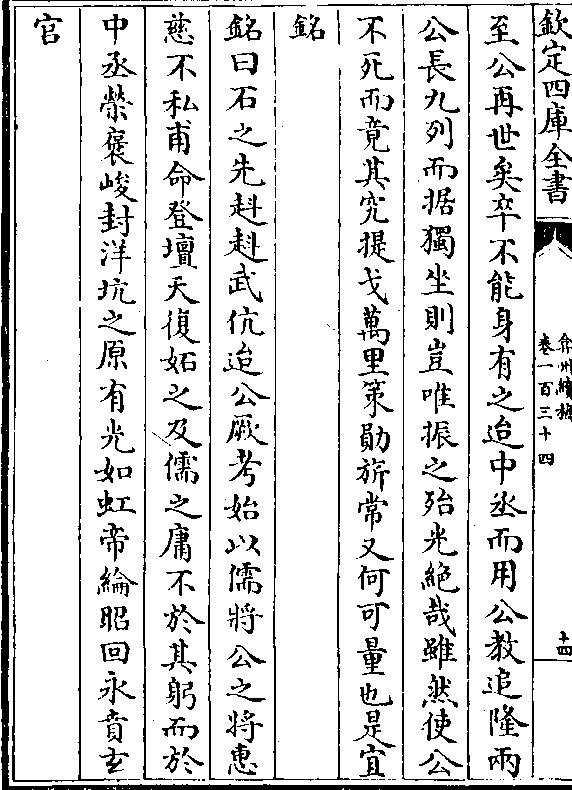 欽定四庫全書
弇州續稿
卷一百三十四
十四
至公再世矣卒不能身有之迨中丞而用公教追隆兩
公長九列而据獨坐則豈唯振之殆光絶哉雖然使公
不死而竟其究提戈萬里策勛旂常又何可量也是宜
銘
銘曰石之先赳赳武伉迨公厥考始以儒將公之將惠
慈不私甫命登壇天復妬之及儒之庸不於其躬而於
中丞榮褒峻封洋坑之原有光如虹帝綸昭回永賁玄
官